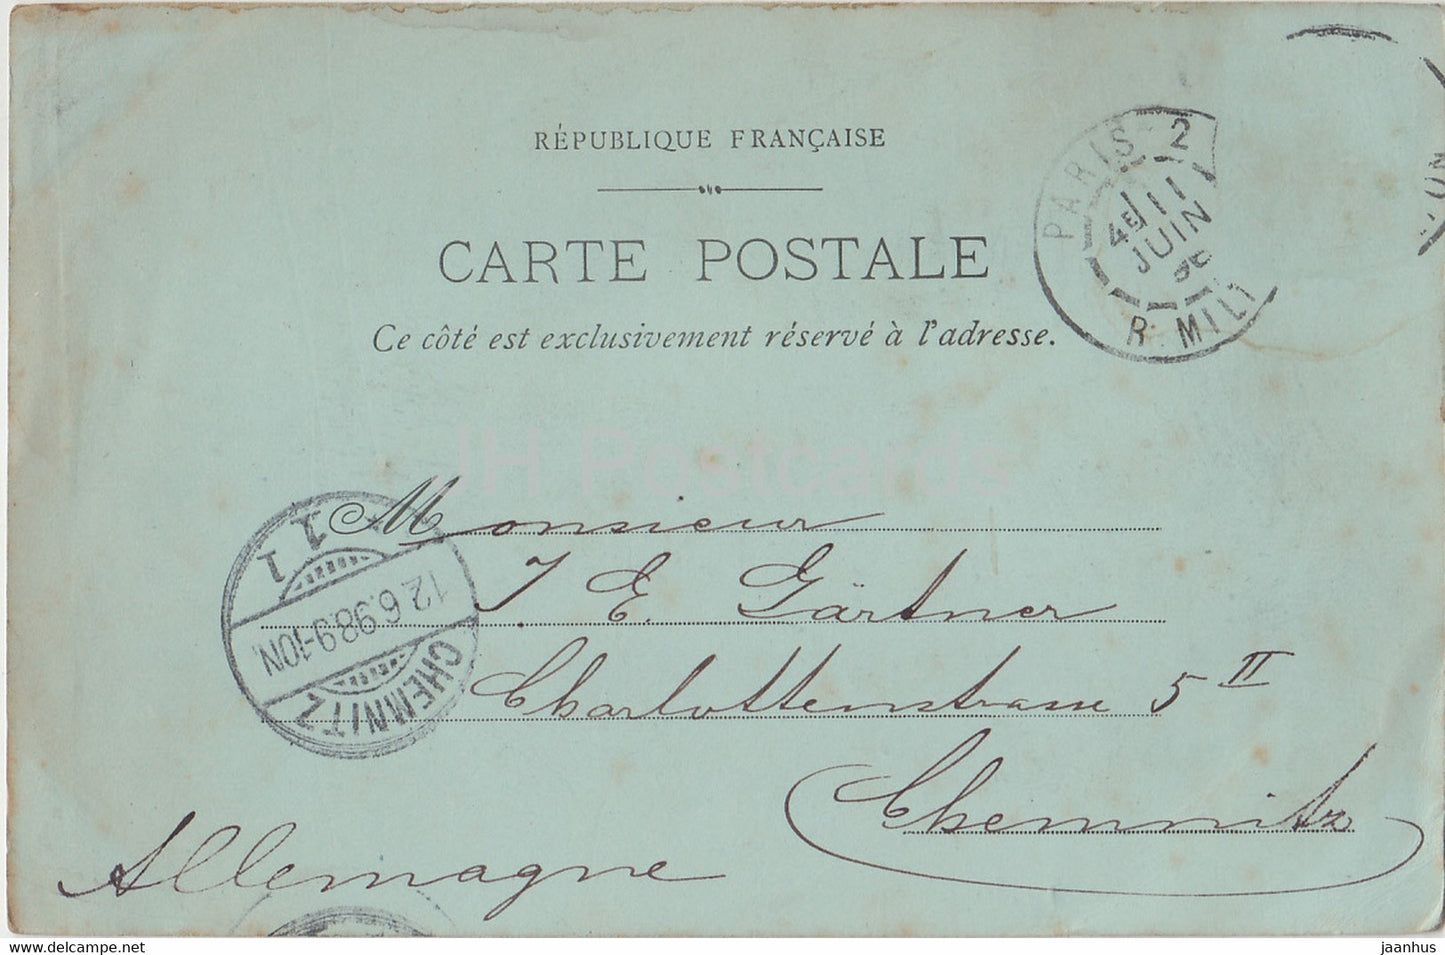 RÉPUBLIQUE FRANÇAISE
CARTE POSTALE
Ce côté est exclusivement réservé à l'adresse.
PARIS 2
11
JUIN
R. MILT
JH Postcards
Monsieur
J E. Gärtner
Charlottenstrasse 5 II
Chemnitz
Allemagne
CHEMNITZ
12.6.98.9-10N.
1 1
jaanhus